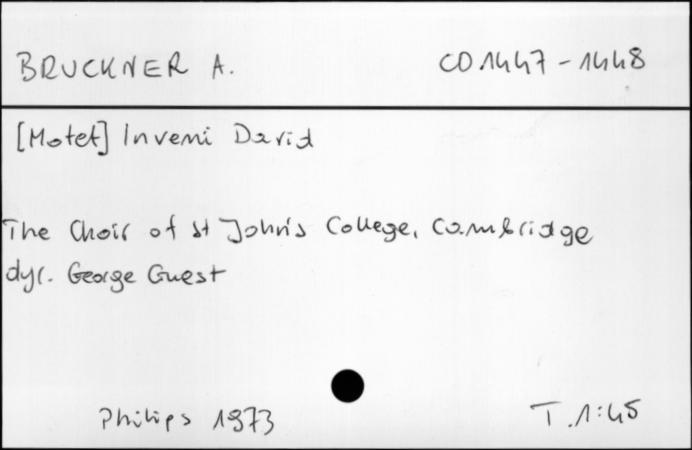 BRUCKNER A. CD 1447-1448
[Motet] Inveni David
The Choir of st John's College, Cambridge
dyr. George Guest
Philips 1973 T. 1:45